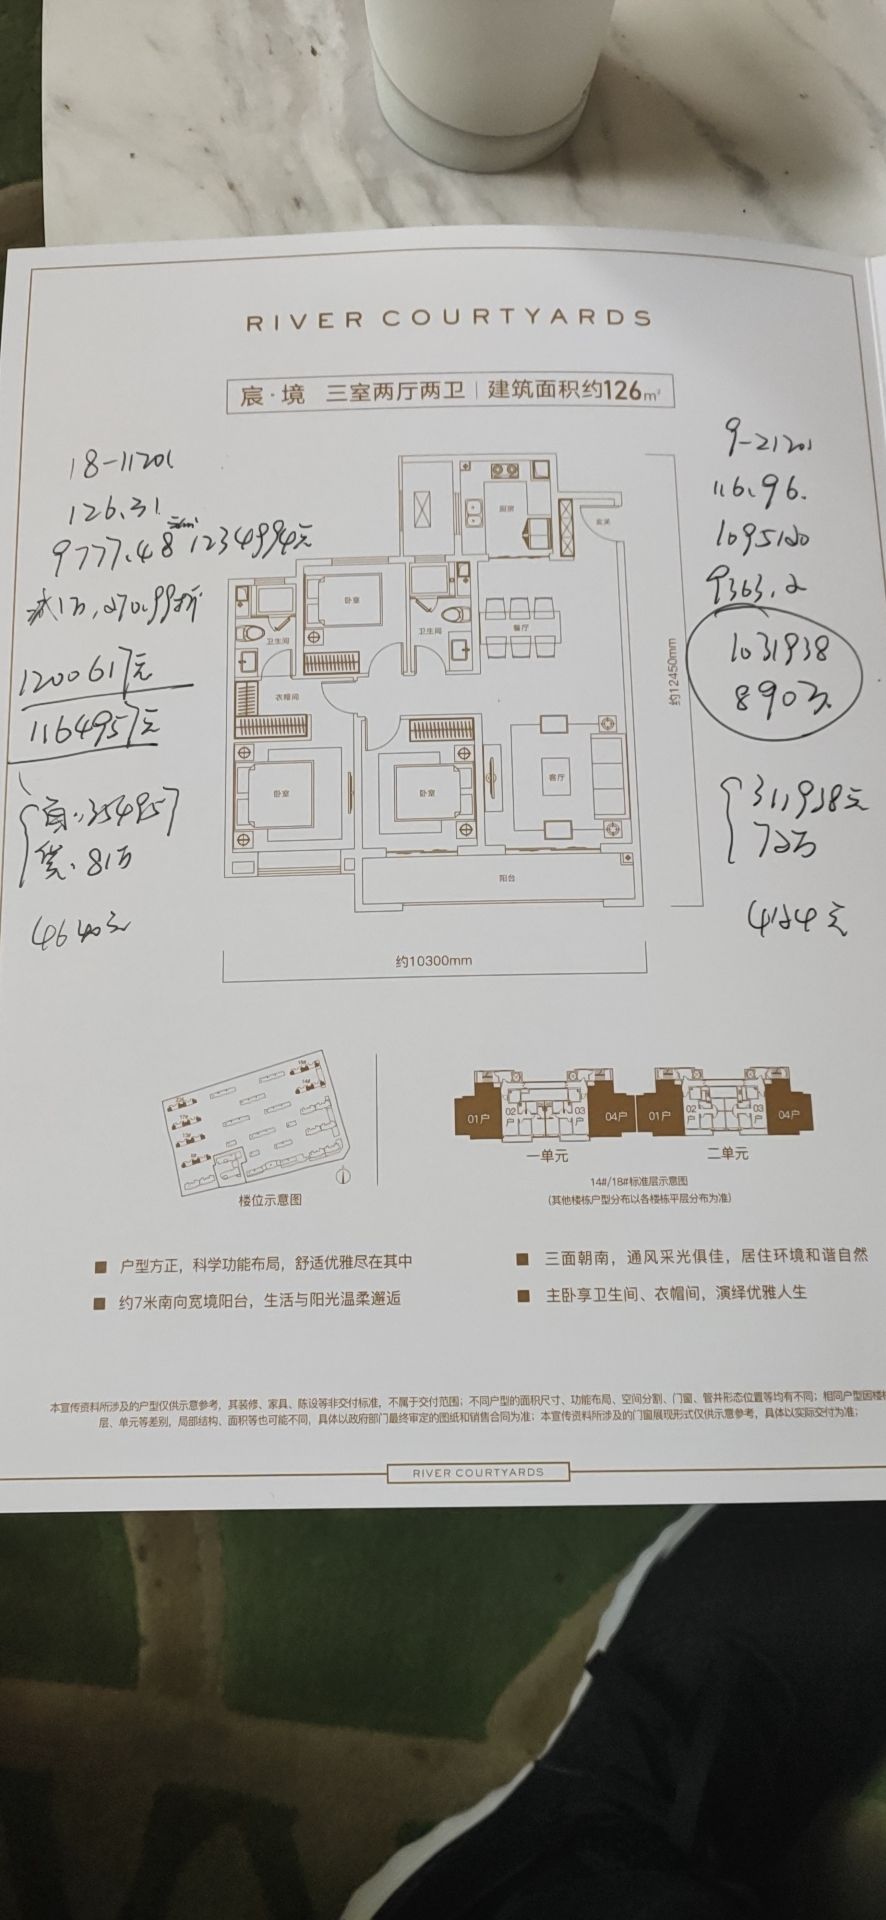 RIVER COURTYARDS
宸·境 三室两厅两卫 | 建筑面积约126m²
18-11201
126.31
9777.48元/m² 1234994元
1200617元
1164957元
首:354957
贷:81万
4640元
9-21201
116.96.
1095120
9363.2
1031938
890万
311938元
72万
4124元
厨房
玄关
卧室
卫生间
卫生间
餐厅
衣帽间
卧室
卧室
客厅
阳台
约12450mm
约10300mm
楼位示意图
01户
02户
03户
04户
01户
02户
03户
04户
一单元
二单元
14#/18#标准层示意图
(其他楼栋户型分布以各楼栋平层分布为准)
■ 户型方正，科学功能布局，舒适优雅尽在其中
■ 约7米南向宽境阳台，生活与阳光温柔邂逅
■ 三面朝南，通风采光俱佳，居住环境和谐自然
■ 主卧享卫生间、衣帽间，演绎优雅人生
本宣传资料所涉及的户型仅供示意参考，其装修、家具、陈设等非交付标准，不属于交付范围；不同户型的面积尺寸、功能布局、空间分割、门窗、管井形态位置等均有不同；相同户型因楼栋
层、单元等差别，局部结构、面积等也可能不同，具体以政府部门最终审定的图纸和销售合同为准；本宣传资料所涉及的门窗展现形式仅供示意参考，具体以实际交付为准；
RIVER COURTYARDS